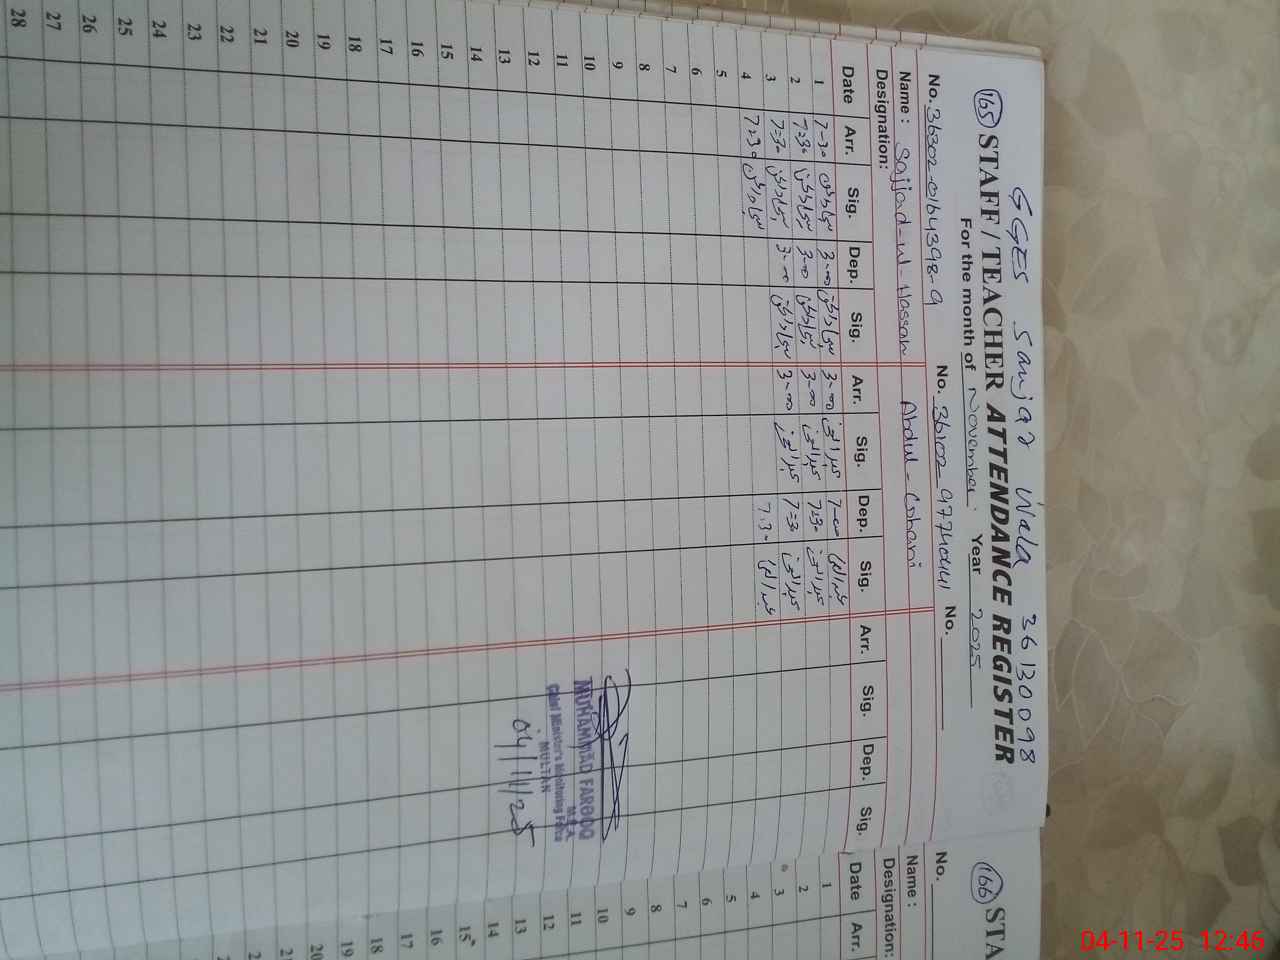 GGES Sanjar Wala 36130098
165 STAFF / TEACHER ATTENDANCE REGISTER
For the month of November. Year 2025
No. 36302-0164398-9 No. 36102-97740441 No.
Name : Sajjad-ul-Hassan Abdul-Ghani
Designation:
Date Arr. Sig. Dep. Sig. Arr. Sig. Dep. Sig. Arr. Sig. Dep. Sig.
1 7-30 3-00 3-00 7-00
2 7=30 3-00 3-00 7=30
3 7=30 3-00 3-00 7=30
4 7=30 7.30
5
6
7
8
9
10
11
12
13
14
15
16
17
18
19
20
21
22
23
24
25
26
27
28
MUHAMMAD FAROOQ
M.E.A.
Chief Minister's Monitoring Force
MULTAN
04/11/25
166 STA
No.
Name :
Designation:
Date Arr.
1
2
3
4
5
6
7
8
9
10
11
12
13
14
15
16
17
18
19
20
04-11-25 12:46